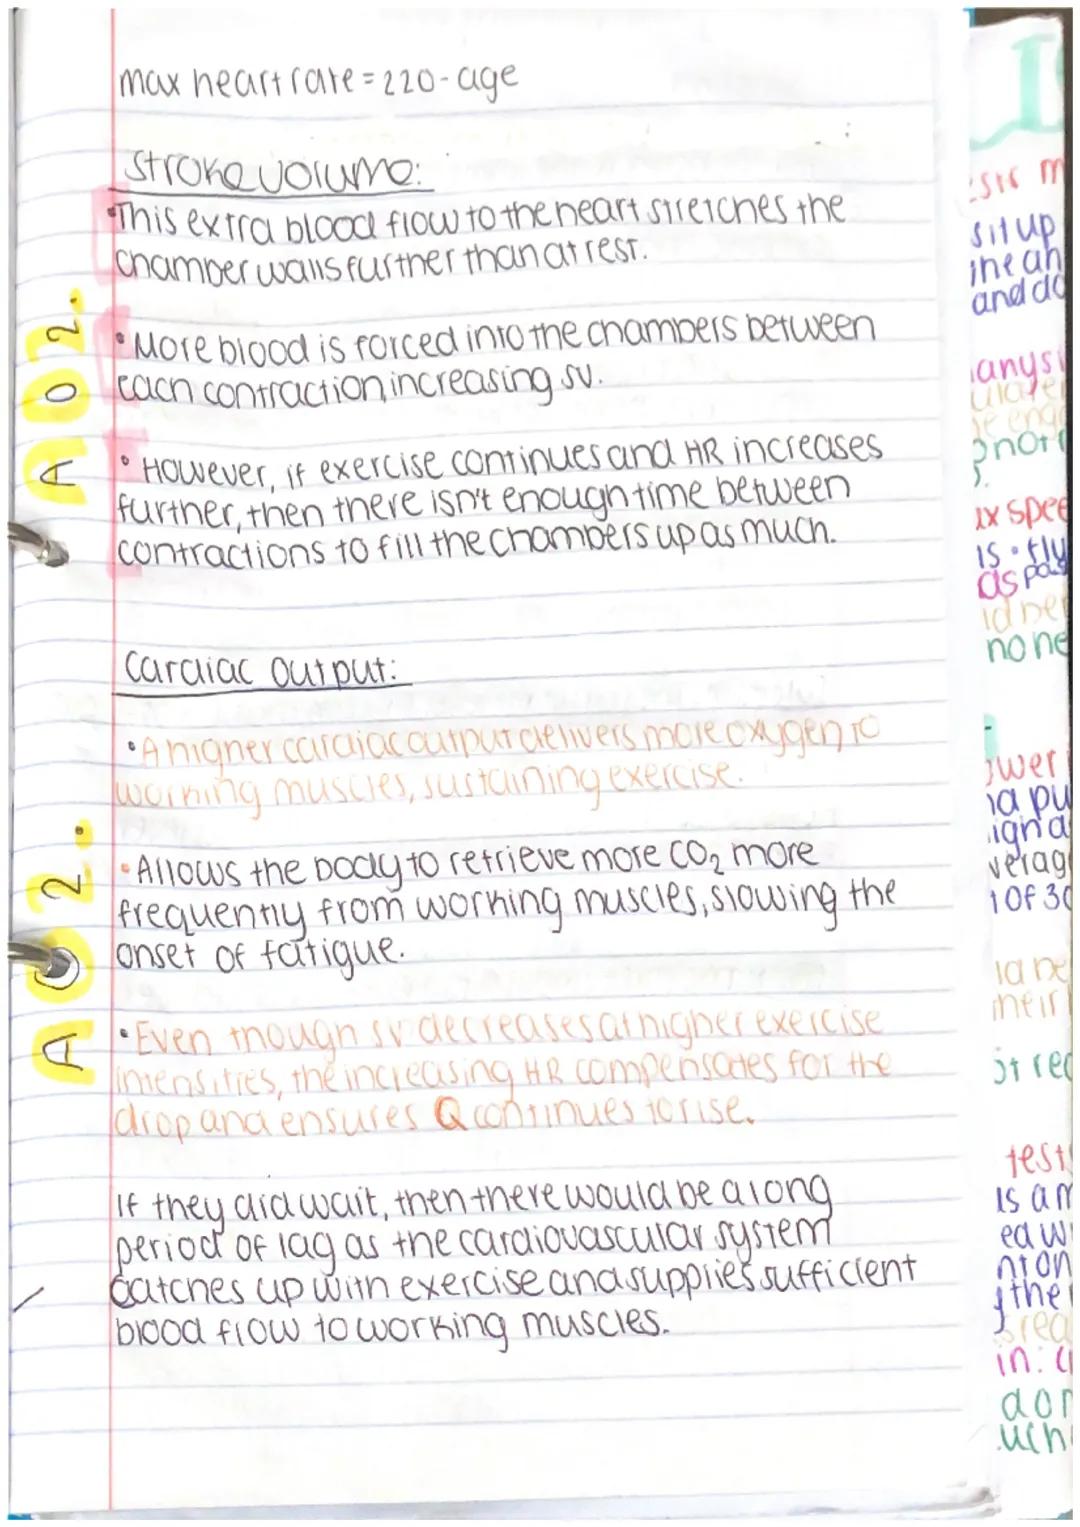 max heart rate = 220 - age
Stroke volume:
•This extra blood flow to the heart stretches the
chamber walls further than at rest.
AO2.
• More blood is forced into the chambers between
each contraction, increasing SV.
• However, if exercise continues and HR increases
further, then there isn't enough time between
contractions to fill the chambers up as much.
Cardiac output:
• A higher cardiac output delivers more oxygen to
working muscles, sustaining exercise.
AO2.
• Allows the body to retrieve more CO₂ more
frequently from working muscles, slowing the
onset of fatigue.
• Even though SV decreases at higher exercise
intensities, the increasing HR compensates for the
drop and ensures Q continues to rise.
If they did wait, then there would be a long
period of lag as the cardiovascular system
catches up with exercise and supplies sufficient
blood flow to working muscles.
sit up
and do
no ne
1 of 30
test
is am
the
in: